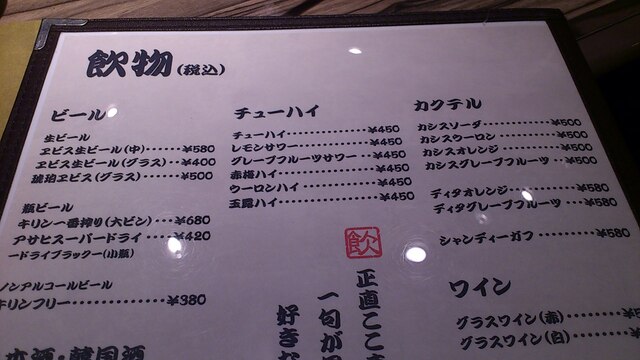 飲物(税込)
ビール
生ビール
ヱビス生ビール(中)・・・¥580
ヱビス生ビール(グラス)・・¥400
琥珀ヱビス(グラス)・・・・¥500
瓶ビール
キリン一番搾り(大ビン)・・・¥680
アサヒスーパードライ・・・・¥420
ードライブラック(小瓶)
ノンアルコールビール
キリンフリー・・・・・・・・・・¥380
チューハイ
チューハイ・・・・・・・・・・¥450
レモンサワー・・・・・・・・・¥450
グレープフルーツサワー・・・・¥450
赤搾ハイ・・・・・・・・・・・¥450
ウーロンハイ・・・・・・・・・¥450
玉露ハイ・・・・・・・・・・・¥450
飲
正直ここ
一句が
好き
カクテル
カシスソーダ・・・・・・・・¥500
カシスウーロン・・・・・・・¥500
カシスオレンジ・・・・・・・¥500
カシスグレープフルーツ・・・¥500
ディタオレンジ・・・・・・・¥580
ディタグレープフルーツ・・・¥580
シャンディーガフ・・・・・・¥580
ワイン
グラスワイン(赤)・・・・・・¥5
グラスワイン(白)・・・・・・
本酒・韓国酒